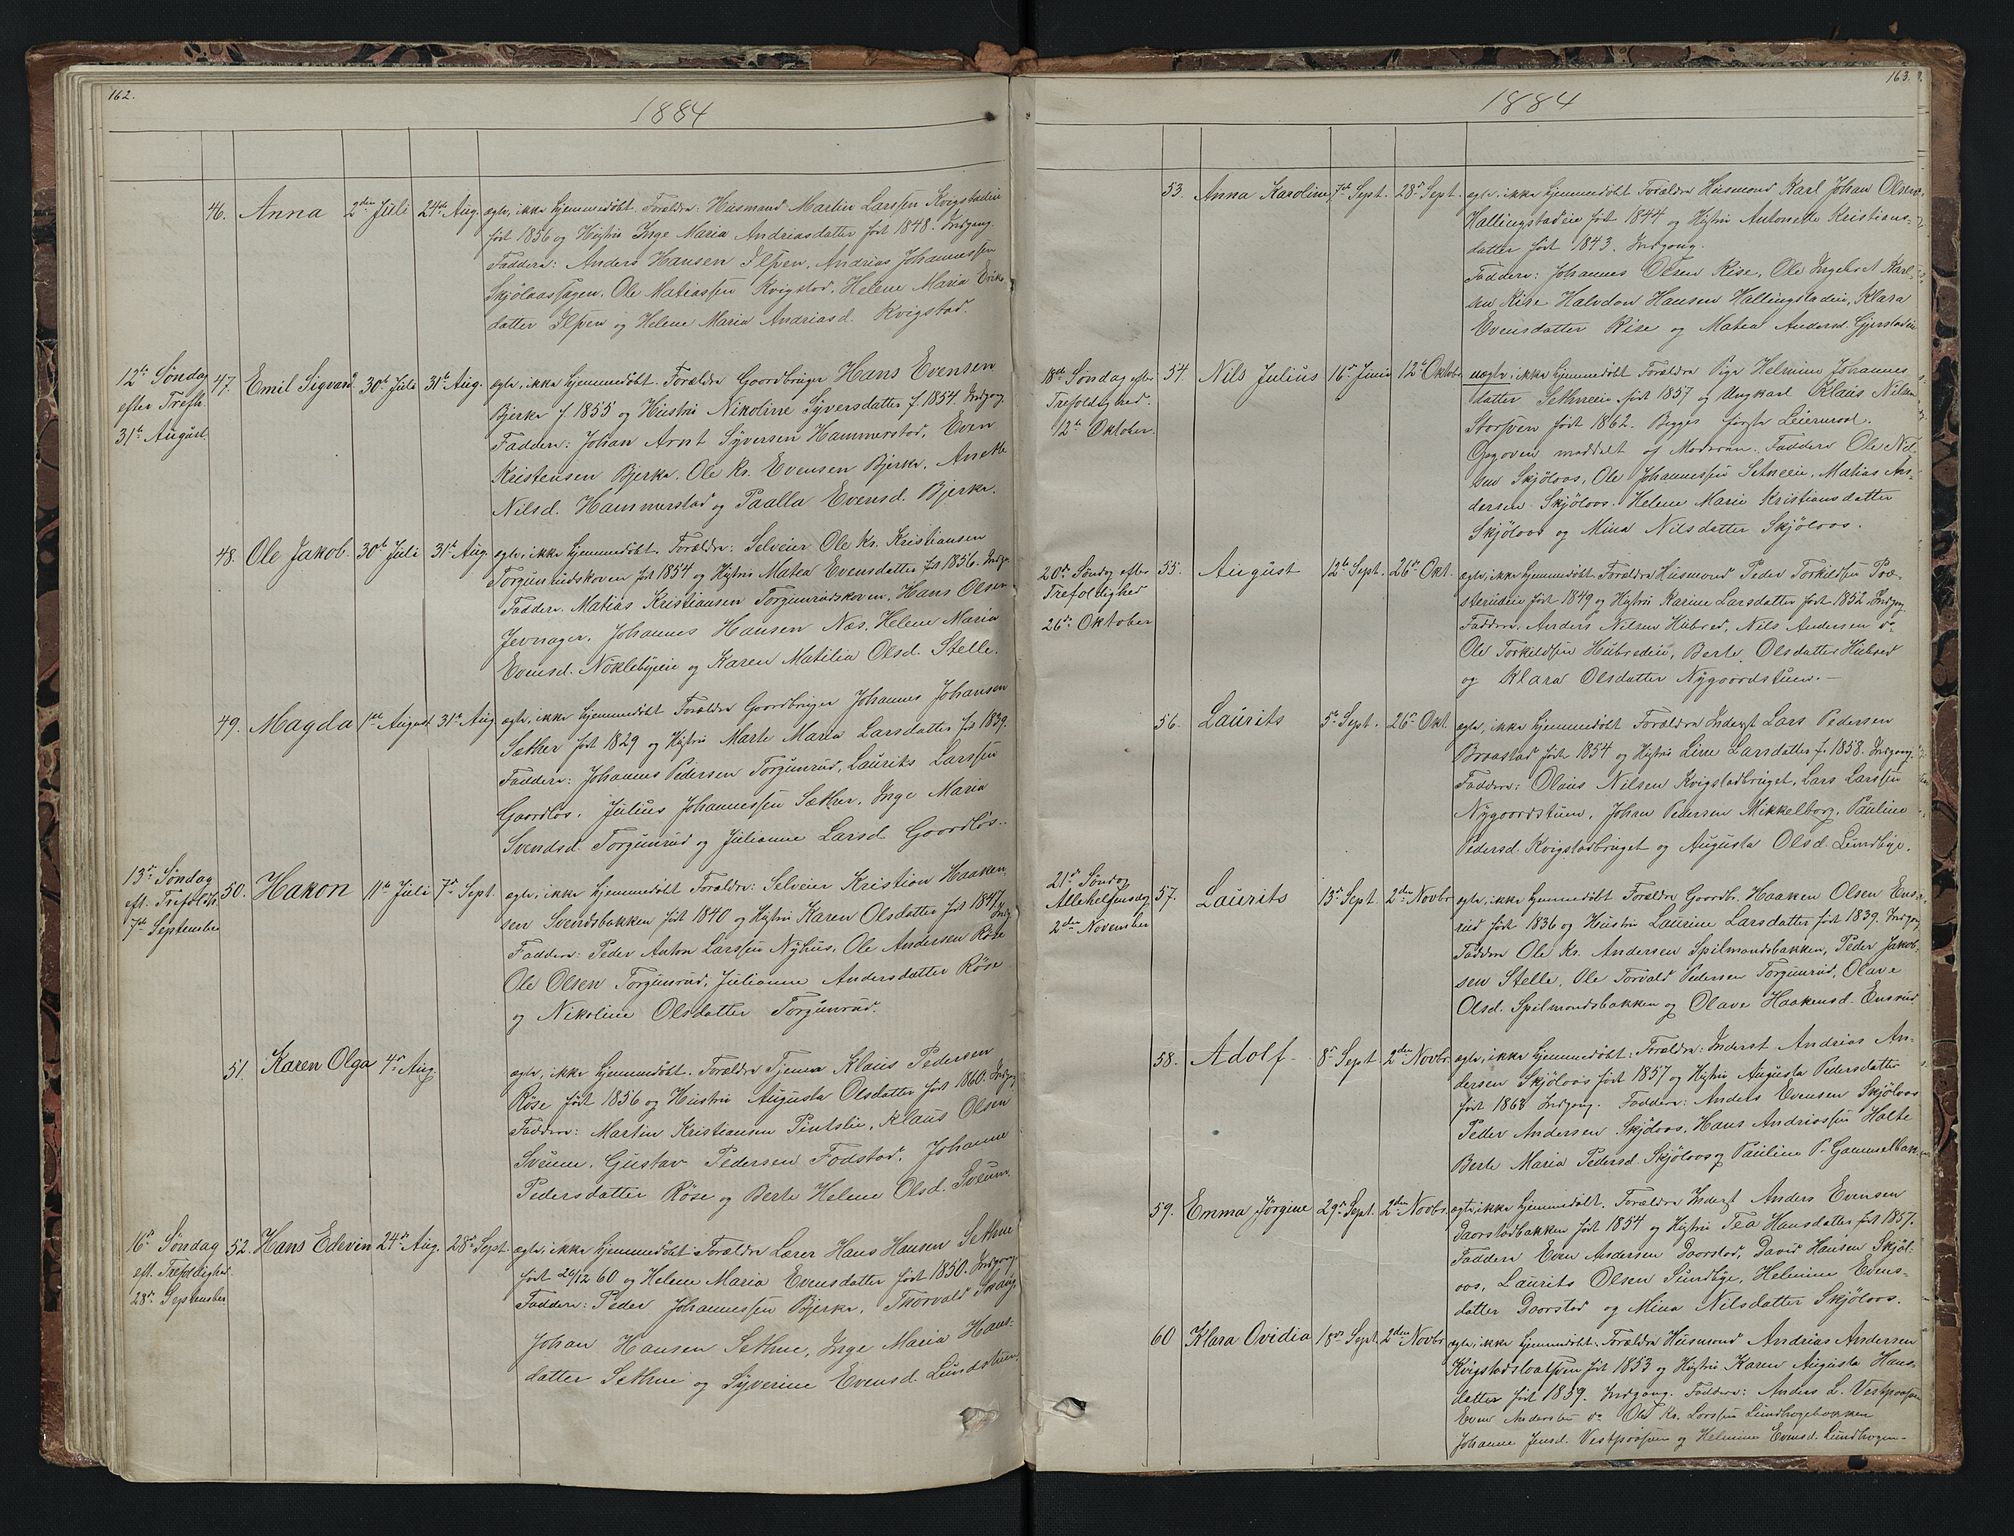 162.
1884
46. Anna 2den Juli 24de Aug. ægte, ikke hjemmedøbt. Forældre: Husmand Martin Larssen Kvigstadeie
født 1856 og Hustru Inge Maria Andriasdatter født 1848. Indgang.
Faddere: Anders Hansen Ilpen, Andrias Johannessen
Skjölaassagen, Ole Matiassen Kvigstad, Helene Maria Eriks
datter Ilpen og Helene Maria Andriasd. Kvigstad.
12te Søndag
efter Trefh.
31te August
47. Emil Sigvard 30te Juli 31te Aug. ægte, ikke hjemmedøbt. Forældre Gaardbruger Hans Evensen
Bjerke f. 1855 og Hustru Nikoline Syversdatter f. 1854. Indgang
Faddere: Johan Arnt Syversen Hammerstad, Even
Kristensen Bjerke, Ole Kr. Evensen Bjerke, Anette
Nilsd. Hammerstad og Paalla Evensd. Bjerke.
48. Ole Jakob. 30te Juli 31te Aug. ægte, ikke hjemmedøbt. Forældre: Selveier Ole Kr. Kristiansen
Torgunrudskoven født 1854 og Hustru Matea Evensdatter født 1856. Indg.
Faddere. Matias Kristiansen Torgunrudskoven, Hans Olsen
Jevnager, Johannes Hansen Næs, Helene Maria
Evensd. Nøklebyeie og Karen Matilia Olsd. Stelle.
49. Magda 1ste August 31te Aug. ægte, ikke hjemmedøbt Forældre Gaardbruger Johannes Johansen
Sæther født 1829 og Hustru Marte Maria Larsdatter født 1839.
Faddere: Johannes Pedersen Torgunrud, Laurits Larssen
Gaardløs, Julius Johannessen Sæther, Inge Maria
Svendsd. Torgunrud og Julianne Larsd Gaardløs.
13de Søndag
eft. Trefoldh.
7de September
50. Hakon 11te Juli 7de Sept. ægte, ikke hjemmedøbt Forældre: Selveier Kristian Haaken-
sen Svendsbakken født 1840 og Hustru Karen Olsdatter født 1847. Indg
Faddere: Peder Anton Larssen Nyhus, Ole Andersen Røse
Ole Olsen Torgunrud, Julianne Andersdatter Røse
og Nikoline Olsdatter Torgunrud.
51. Karen Olga 4de Aug. ægte, ikke hjemmedøbt. Forældre Tjener Klaus Pedersen
Røse født 1856 og Hustru Augusta Olsdatter født 1860. Indgang
Faddere: Martin Kristiansen Pintslie, Klaus Olsen
Sveum, Gustav Pedersen Fodstad, Johanne
Pedersdatter Røse og Berte Helene Olsd. Sveum.
16de Søndag
eft. Trefoldighed.
28de September
52. Hans Edevin 24de Aug. 28de Sept. ægte, ikke hjemmedøbt Forældre Lærer Hans Hansen Sethne
født 26/12 60 og Helene Maria Evensdatter født 1850. Indgang
Faddere: Peder Johannessen Bjerke, Thorvald Skaug
Johan Hansen Sethne, Inge Maria Hans-
datter Sethne og Syverine Evensd. Lundstuen.
163.
1884
53. Anna Karoline 7de Sept. 28de Sept. ægte, ikke hjemmedøbt Forældre Husmand Karl Johan Olsen
Hallingstadeie født 1844 og Hustru Antonette Kristians-
datter født 1843. Indgang.
Faddere: Johannes Olsen Rise, Ole Ingebret Karl-
sen Rise Halvdan Hansen Hallingstadeie, Klara
Evensdatter Rise og Matea Andersd. Gjerstadeie
18de Søndag efter
Trefoldighed.
12te Oktober.
54. Nils Julius 16de Juni 12te Oktober uægte, ikke hjemmedøbt Forældre Pige Helmine Johannes
datter Sethneeie født 1857 og Ungkarl Klaus Nilsen
Storsveen født 1862. Begges første Leiermaal.
Opgaven meddelt af Moderen. Faddere Ole Nil-
sen Skjölaas, Ole Johannessen Setneeie, Matias An-
dersen Skjölaas, Helene Marie Kristiansdatter
Skjölaas og Mina Nilsdatter Skjölaas.
20de Søndag efter
Trefoldighed
26de Oktober
55. August 12te Sept. 26de Okt. ægte, ikke hjemmedøbt. Forældre Husmand Peder Torkildsen Præ-
sterudeie født 1849 og Hustru Karine Larsdatter født 1852 Indgang.
Faddere. Anders Nilsen Hubred, Nils Andersen do
Ole Torkildsen Hubredeie, Berte Olsdatter Hubred
og Klara Olsdatter Nygaardstuen.
56. Laurits 5te Sept. 26de Okt ægte, ikke hjemmedøbt Forældre Inderst Lars Pedersen
Braastad født 1854 og Hustru Line Larsdatter f. 1858. Indgang.
Faddere: Olaus Nilsen Kvigstadbruget, Lars Larssen
Nygaardstuen, Johan Pedersen Mikkelborg, Pauline
Pedersd. Kvigstadbruget og Augusta Olsd. Lundbye.
21de Søndag
Allehelgensdag
2den November
57. Laurits 13de Sept 2den Novbr ægte, ikke hjemmedøbt Forældre Gaardbr. Haaken Olsen Ens-
rud født 1836 og Hustru Laurine Larsdatter født 1839. Indgang
Faddere Ole Kr. Andersen Spilmandsbakken, Peder Jakob-
sen Stelle, Ole Torvald Pedersen Torgunrud, Olave
Olsd. Spilmandsbakken og Olave Haakensd. Ensrud
58. Adolf 8de Sept 2den Novbr ægte, ikke hjemmedøbt: Forældre: Inderst Andrias An-
dersen Skjölaas født 1857 og Hustru Augusta Pedersdatter
født 1863 Indgang. Faddere: Anders Evensen Skjölaas
Peder Andersen Skjölaas, Hans Andriassen Holte
Berte Maria Pedersd. Skjölaas og Pauline P. Gammelbak
59. Emma Jørgine 29de Sept. 2den Novbr. ægte, ikke hjemmedøbt. Forældre Inderst Anders Evensen
Daarstadbakken født 1854 og Hustru Tea Hansdatter født 1857.
Faddere Even Andersen Daarstad, David Hansen Skjöl-
aas, Laurits Olsen Sundbye, Helmine Evens-
datter Daarstad og Mina Nilsdatter Skjölaas.
60 Klara Ovidia 18de Sept. 2den Novbr. ægte, ikke hjemmedøbt. Forældre Husmand Andrias Andersen
født 1853 og Hustru Karen Augusta Hans-
datter født 1859. Indgang. Faddere: Anders L.
Even Andersen do Ole Kr. Larssen Lundhagebakken
Johanne Jensd. og Helmine Evensd. Lundhagen